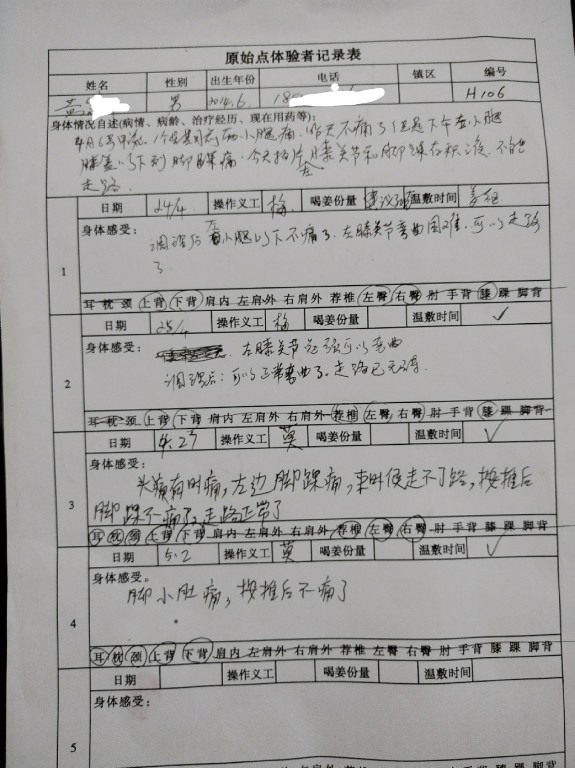 原始点体验者记录表
姓名 性别 出生年份 电话 镇区 编号
黄 男 2014.6 18 H106
身体情况自述(病情、病龄、治疗经历、现在用药等):
小腿痛,昨天不痛了 下午 小腿
膝盖以下到脚踝痛,今天拍片左膝关节和脚踝有积液,不能
走路。
1
日期 24/4 操作义工 梅 喝姜份量 建议 温敷时间
身体感受:
调理后左小腿以下不痛了,左膝关节弯曲困难,可以走路
了.
耳 枕 颈 上背 下背 肩内 左肩外 右肩外 荐椎 左臀 右臀 肘 手背 膝 踝 脚背
2
日期 25/4 操作义工 梅 喝姜份量 温敷时间 ✓
身体感受:
左膝关节 可以弯曲
调理后:可以正常弯曲了,走路已无碍
耳 枕 颈 上背 下背 肩内 左肩外 右肩外 荐椎 左臀 右臀 肘 手背 膝 踝 脚背
3
日期 操作义工 莫 喝姜份量 温敷时间 ✓
身体感受:
头痛有时痛,左边脚踝痛,来时候走不了路,按推后
脚踝不痛了,走路正常了
耳 枕 颈 上背 下背 肩内 左肩外 右肩外 荐椎 左臀 右臀 肘 手背 膝 踝 脚背
4
日期 5.2 操作义工 莫 喝姜份量 温敷时间 ✓
身体感受。
脚小肚痛,按推后不痛了
耳 枕 颈 上背 下背 肩内 左肩外 右肩外 荐椎 左臀 右臀 肘 手背 膝 踝 脚背
5
日期 操作义工 喝姜份量 温敷时间
身体感受: